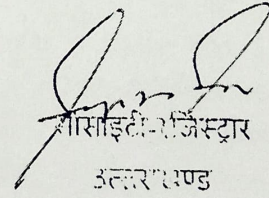 सोसाइटी रजिस्ट्रार
उत्तराखण्ड